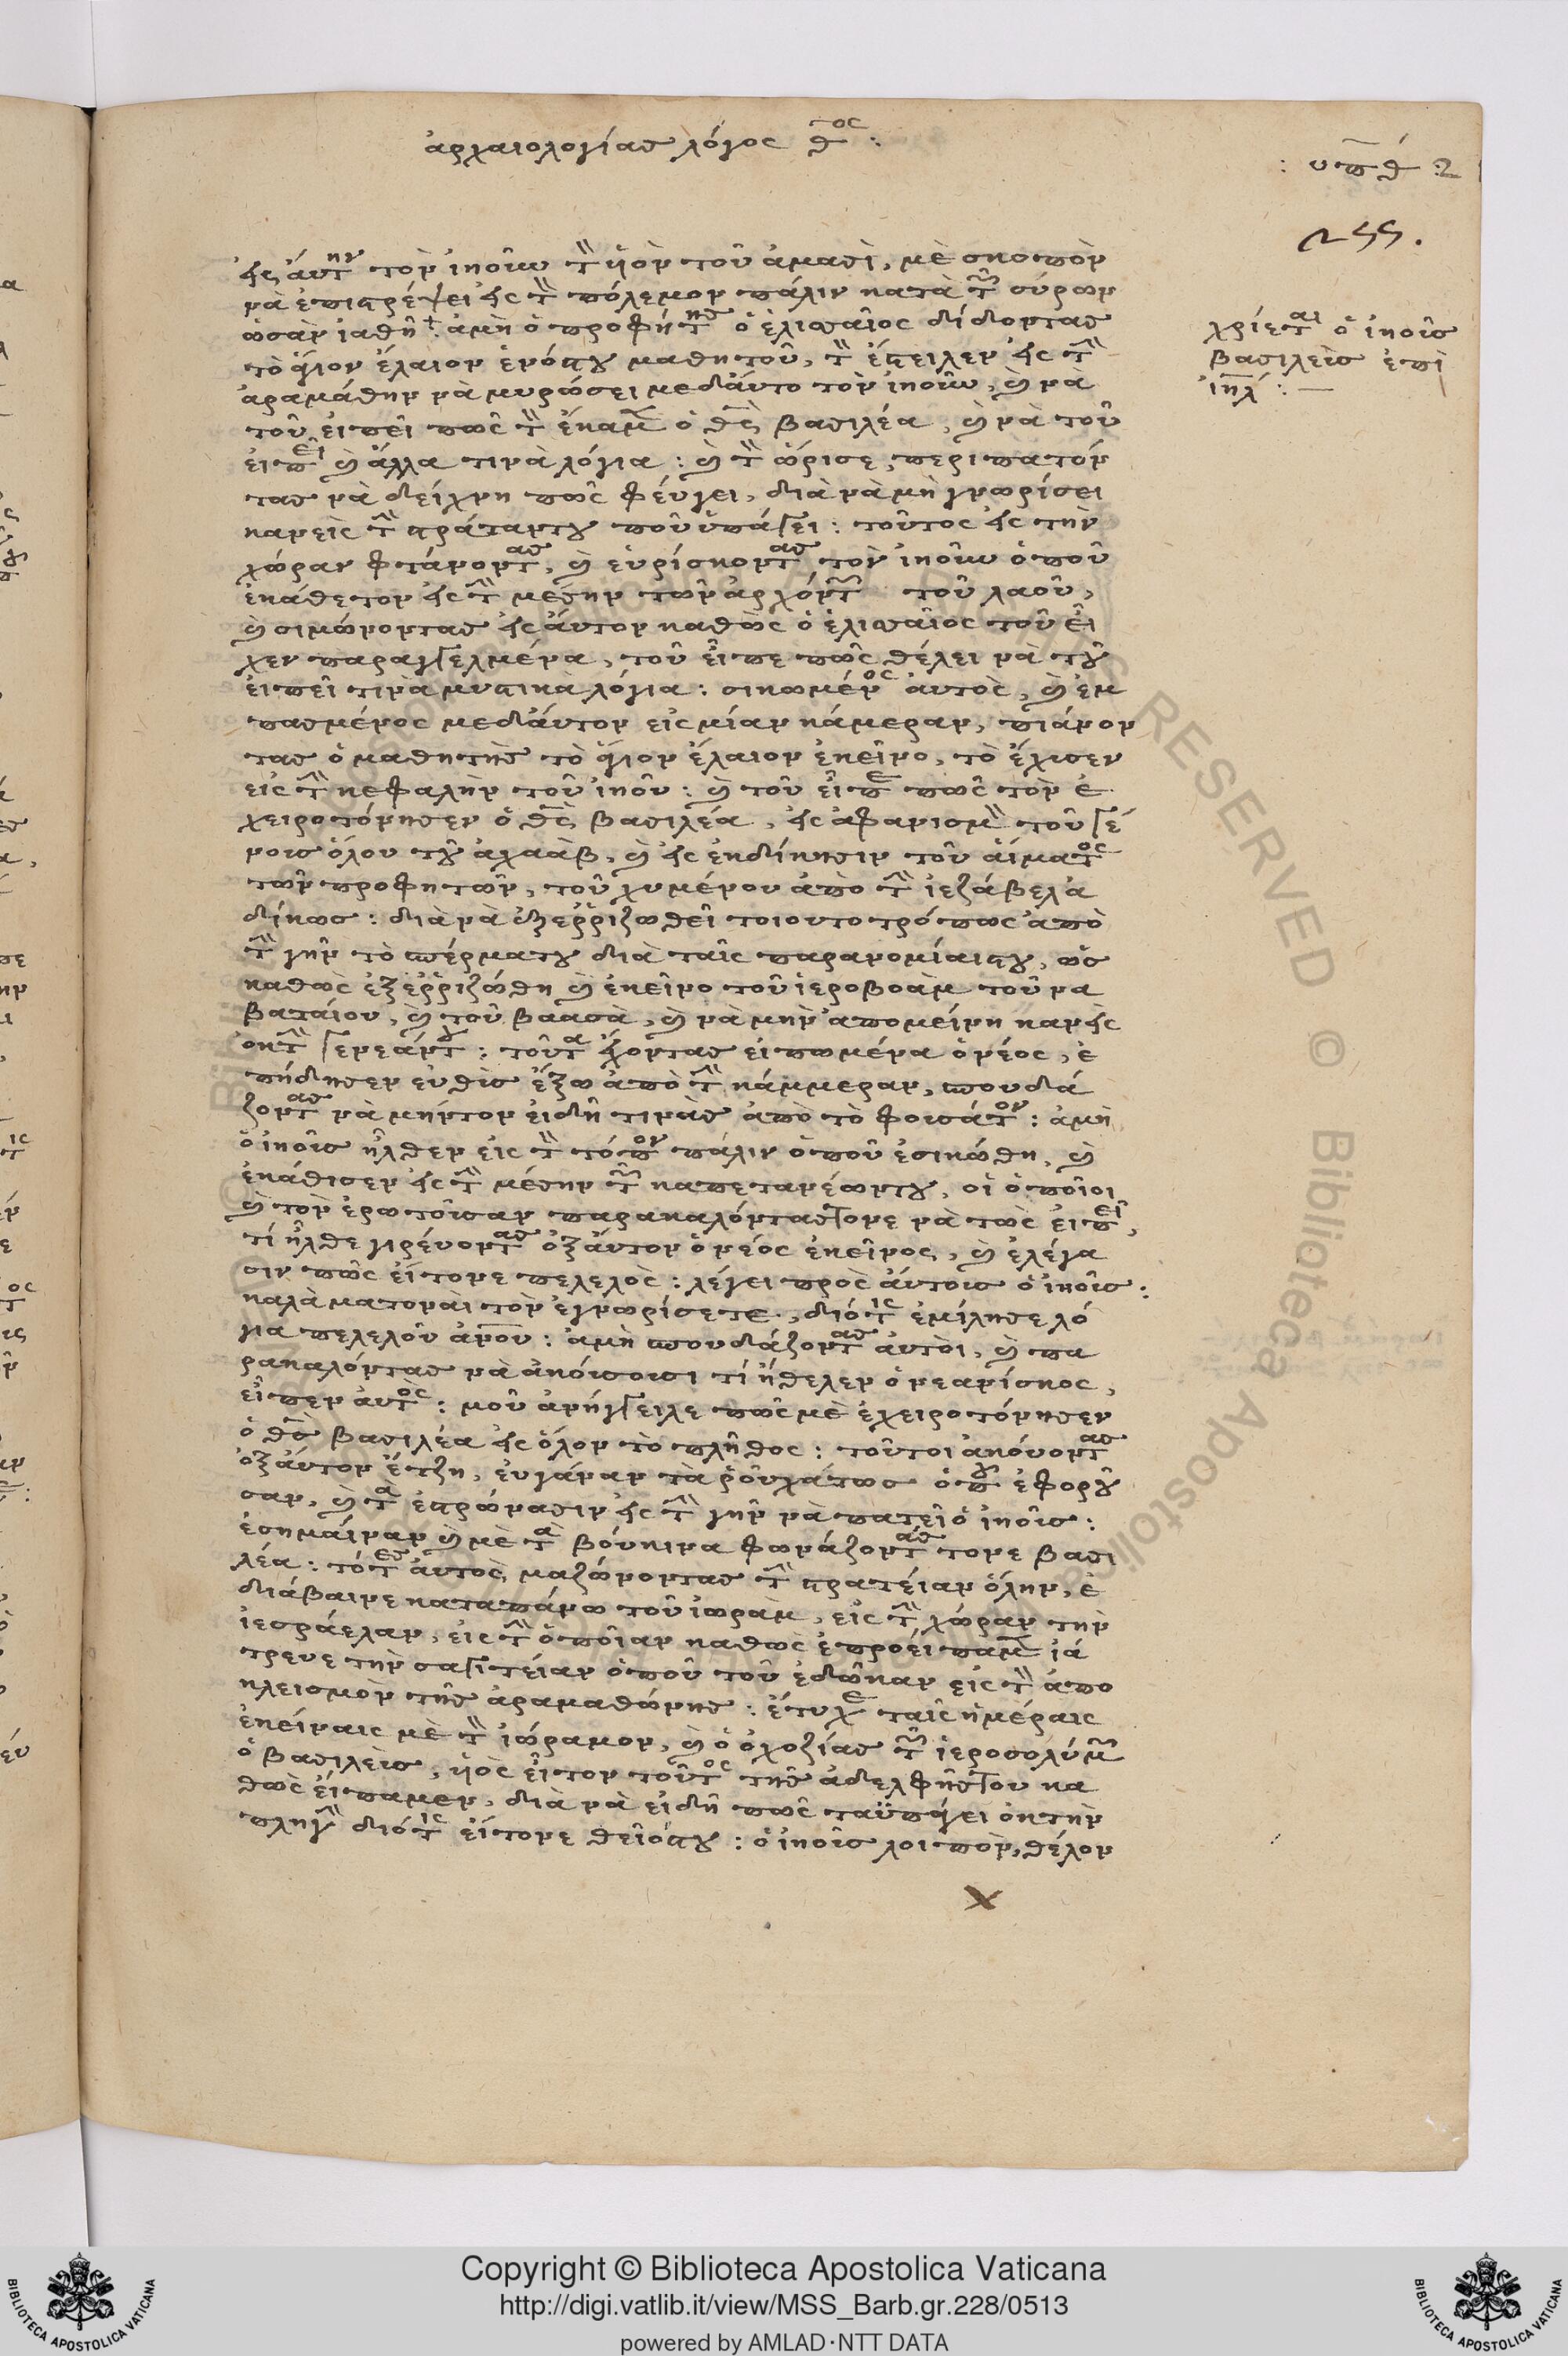 ἀρχαιολογίασ λόγος θ^τος :
: υπθ΄ : 2
255.
ἐις ἀυτὴν τὸν ἰηοῦν τὸν ὑὸν τοῦ ἀμασὶ, μὲ σκοπὸν
νὰ ἐπιστρέψει ἐις τὸν πόλεμον πάλιν κατὰ τῶν σύρων
ὡσὰν ἰαθῆ: ἀμὴ ὁ προφήτησ ὁ ἐλισσαῖος δίδοντασ
τὸ ἅγιον ἔλαιον ἑνόστου μαθητοῦ, τὸν ἔστειλεν ἐις τὴν
ἀραμάθην νὰ μυρώσει μεδἄυτο τὸν ἰηοῦν, καὶ νὰ
τοῦ ἐιπεῖ πῶς τὸν ἔκαμεν ὁ θεὸς βασιλέα, καὶ νὰ τοῦ
ἐιπεῖ καὶ ἄλλα τινὰ λόγια: καὶ τὸν ὥρισε, περιπατόν
τασ νὰ δείχνη πῶς φέυγει, διὰ νὰ μὴ γνωρίσει
κανεὶς τὴν στράταντου ποῦ ὑπάγει: τοῦτος ἐις τὴν
χώραν φτάνοντασ, καὶ ἑυρίσκοντασ τὸν ἰηοῦν ὁποῦ
ἐκάθετον ἐις τὴν μέσην τῶν ἀρχόντων τοῦ λαοῦ,
καὶ σιμώνοντασ ἐις ἀυτον καθὼς ὁ ἐλισσαῖος τοῦ εἶ
χεν παραγγελμένα, τοῦ εἶπε πῶς θέλει νὰ τοῦ
ἐιπεῖ τινὰ μυστικὰ λόγια: σικωμένος ἀυτὸς, καὶ ἐμ
πασμένος μεδἄυτον εἰς μίαν κάμεραν, πιάνον
τασ ὁ μαθητὴσ τὸ ἅγιον ἔλαιον ἐκεῖνο, τὸ ἔχισεν
εἰς τὴν κεφαλὴν τοῦ ἰηοῦ: καὶ τοῦ εἶπε πῶς τὸν ἐ
χειροτόνησεν ὁ θεὸς βασιλέα, ἐις ἀφανισμὸν τοῦ γέ
νουσ ὅλου τοῦ ἀχαὰβ, καὶ ἐις ἐκδίκησιν τοῦ ἁίματος
τῶν προφητῶν, τοῦ χυμένου ἀπὸ τὴν ἰεζάβελα
δίκωσ: διὰ νὰ ἐξερριζωθεῖ τοιουτοτρόπως ἀπὸ
τὴν γῆν τὸ σπέρματου διὰ ταῖς παρανομίαιστου, ὡσ
καθὼς ἐξερριζώθη καὶ ἐκεῖνο τοῦ ἰεροβοὰμ τοῦ να
βαταίου, καὶ τοῦ βαασὰ, καὶ νὰ μὴν ἀπομείνη κανεὶς
ὀκ τὴν γενεάντου: τοῦτα ἔχοντασ ἐιπωμένα ὁ νέος, ἐ
πήδησεν ευθὶσ ἔξω ἀπὸ τὴν κάμμεραν, σπουδά
ζοντασ νὰ μήντον ἐιδῆ τινὰσ ἀπὸ τὸ φουσάτον: ἀμὴ
ὁ ἰηοῦσ ἦλθεν εἰς τὸν τόπον πάλιν ὁποῦ ἐσικώθη, καὶ
ἐκάθισεν ἐις τὴν μέσην τῶν καπετανέωντου, οἱ ὁποῖοι
καὶ τὸν ἐρωτοῦσαν παρακαλόντασ τονε νὰ τὼς ἐιπεῖ,
τί ἦλθε γιρέυοντασ ὀξἄυτον ὁ νεός ἐκεῖνος, καὶ ἐλέγα
σιν πῶς εἴτονε πελελὸς: λέγει πρὸς ἀυτουσ ὁ ἰηοῦσ:
καλὰ ματοναὶ τὸν ἐγνωρίσετε, διότις ἐμίλησε λό
για πελελοῦ ἀνοῦ: ἀμὴ σπουδάζοντασ ἀυτοὶ, καὶ πα
ρακαλόντασ νὰ ἀκόυσουσι τί ἤθελεν ὁ νεανίσκος,
εἶπεν ἀυτὸς: μοῦ ἀνήγγειλε πῶς μὲ ἐχειροτόνησεν
ὁ θεὸς βασιλέα ἐις ὅλον τὸ πλῆθος: τοῦτοι ἀκόυοντασ
ὀξἄυτον ἔτζη, ἐυγάναν τὰ ῥοῦχάτωσ ὁποῦ ἐφοροῦ
σαν, καὶ τὰ ἐστρώνασιν ἐις τὴν γῆν νὰ πατεῖ ὁ ἰηοῦσ:
ἐσημαίναν καὶ μὲ τὰ βόυκινα φωνάζοντάσ τονε βασι
λέα: τότεσ ἀυτὸς μαζώνοντασ τὴν στρατείαν ὅλην, ἐ
διάβαινε καταπάνω τοῦ ἰωρὰμ, εἰς τὴν χώραν τὴν
ἰεσράελαν, εἰς τὴν ὁποῖαν καθὼς ἐπροείπαμεν ἰά
τρευε τὴν σαγιτείαν ὁποῦ τοῦ ἐδῶκαν εἰς τὸν ἀπο
κλεισμὸν τῆσ ἀραμαθώνησ: ἔτυχε ταῖς ἡμέραις
ἐκείναις μὲ τὸν ἰώραμον, καὶ ὁ ὀχοζίασ τῶν ἱεροσολύμων
ὁ βασιλεὺσ, ὑὸς εἶτον τοῦτος τῆσ ἀδελφῆστου κα
θὼς ἐίπαμεν, διὰ νὰ ἐιδῆ πῶς ταϋπάγει ὀκ τὴν
πληγὴν διότις ἐίτονε θεῖόστου: ὁ ἰηοῦσ λοιπὸν, θέλον
χρίεται ὁ ἰηοῦσ
βασιλεὺσ ἐπὶ
ἰηλ :—
Copyright © Biblioteca Apostolica Vaticana
http://digi.vatlib.it/view/MSS_Barb.gr.228/0513
powered by AMLAD·NTT DATA